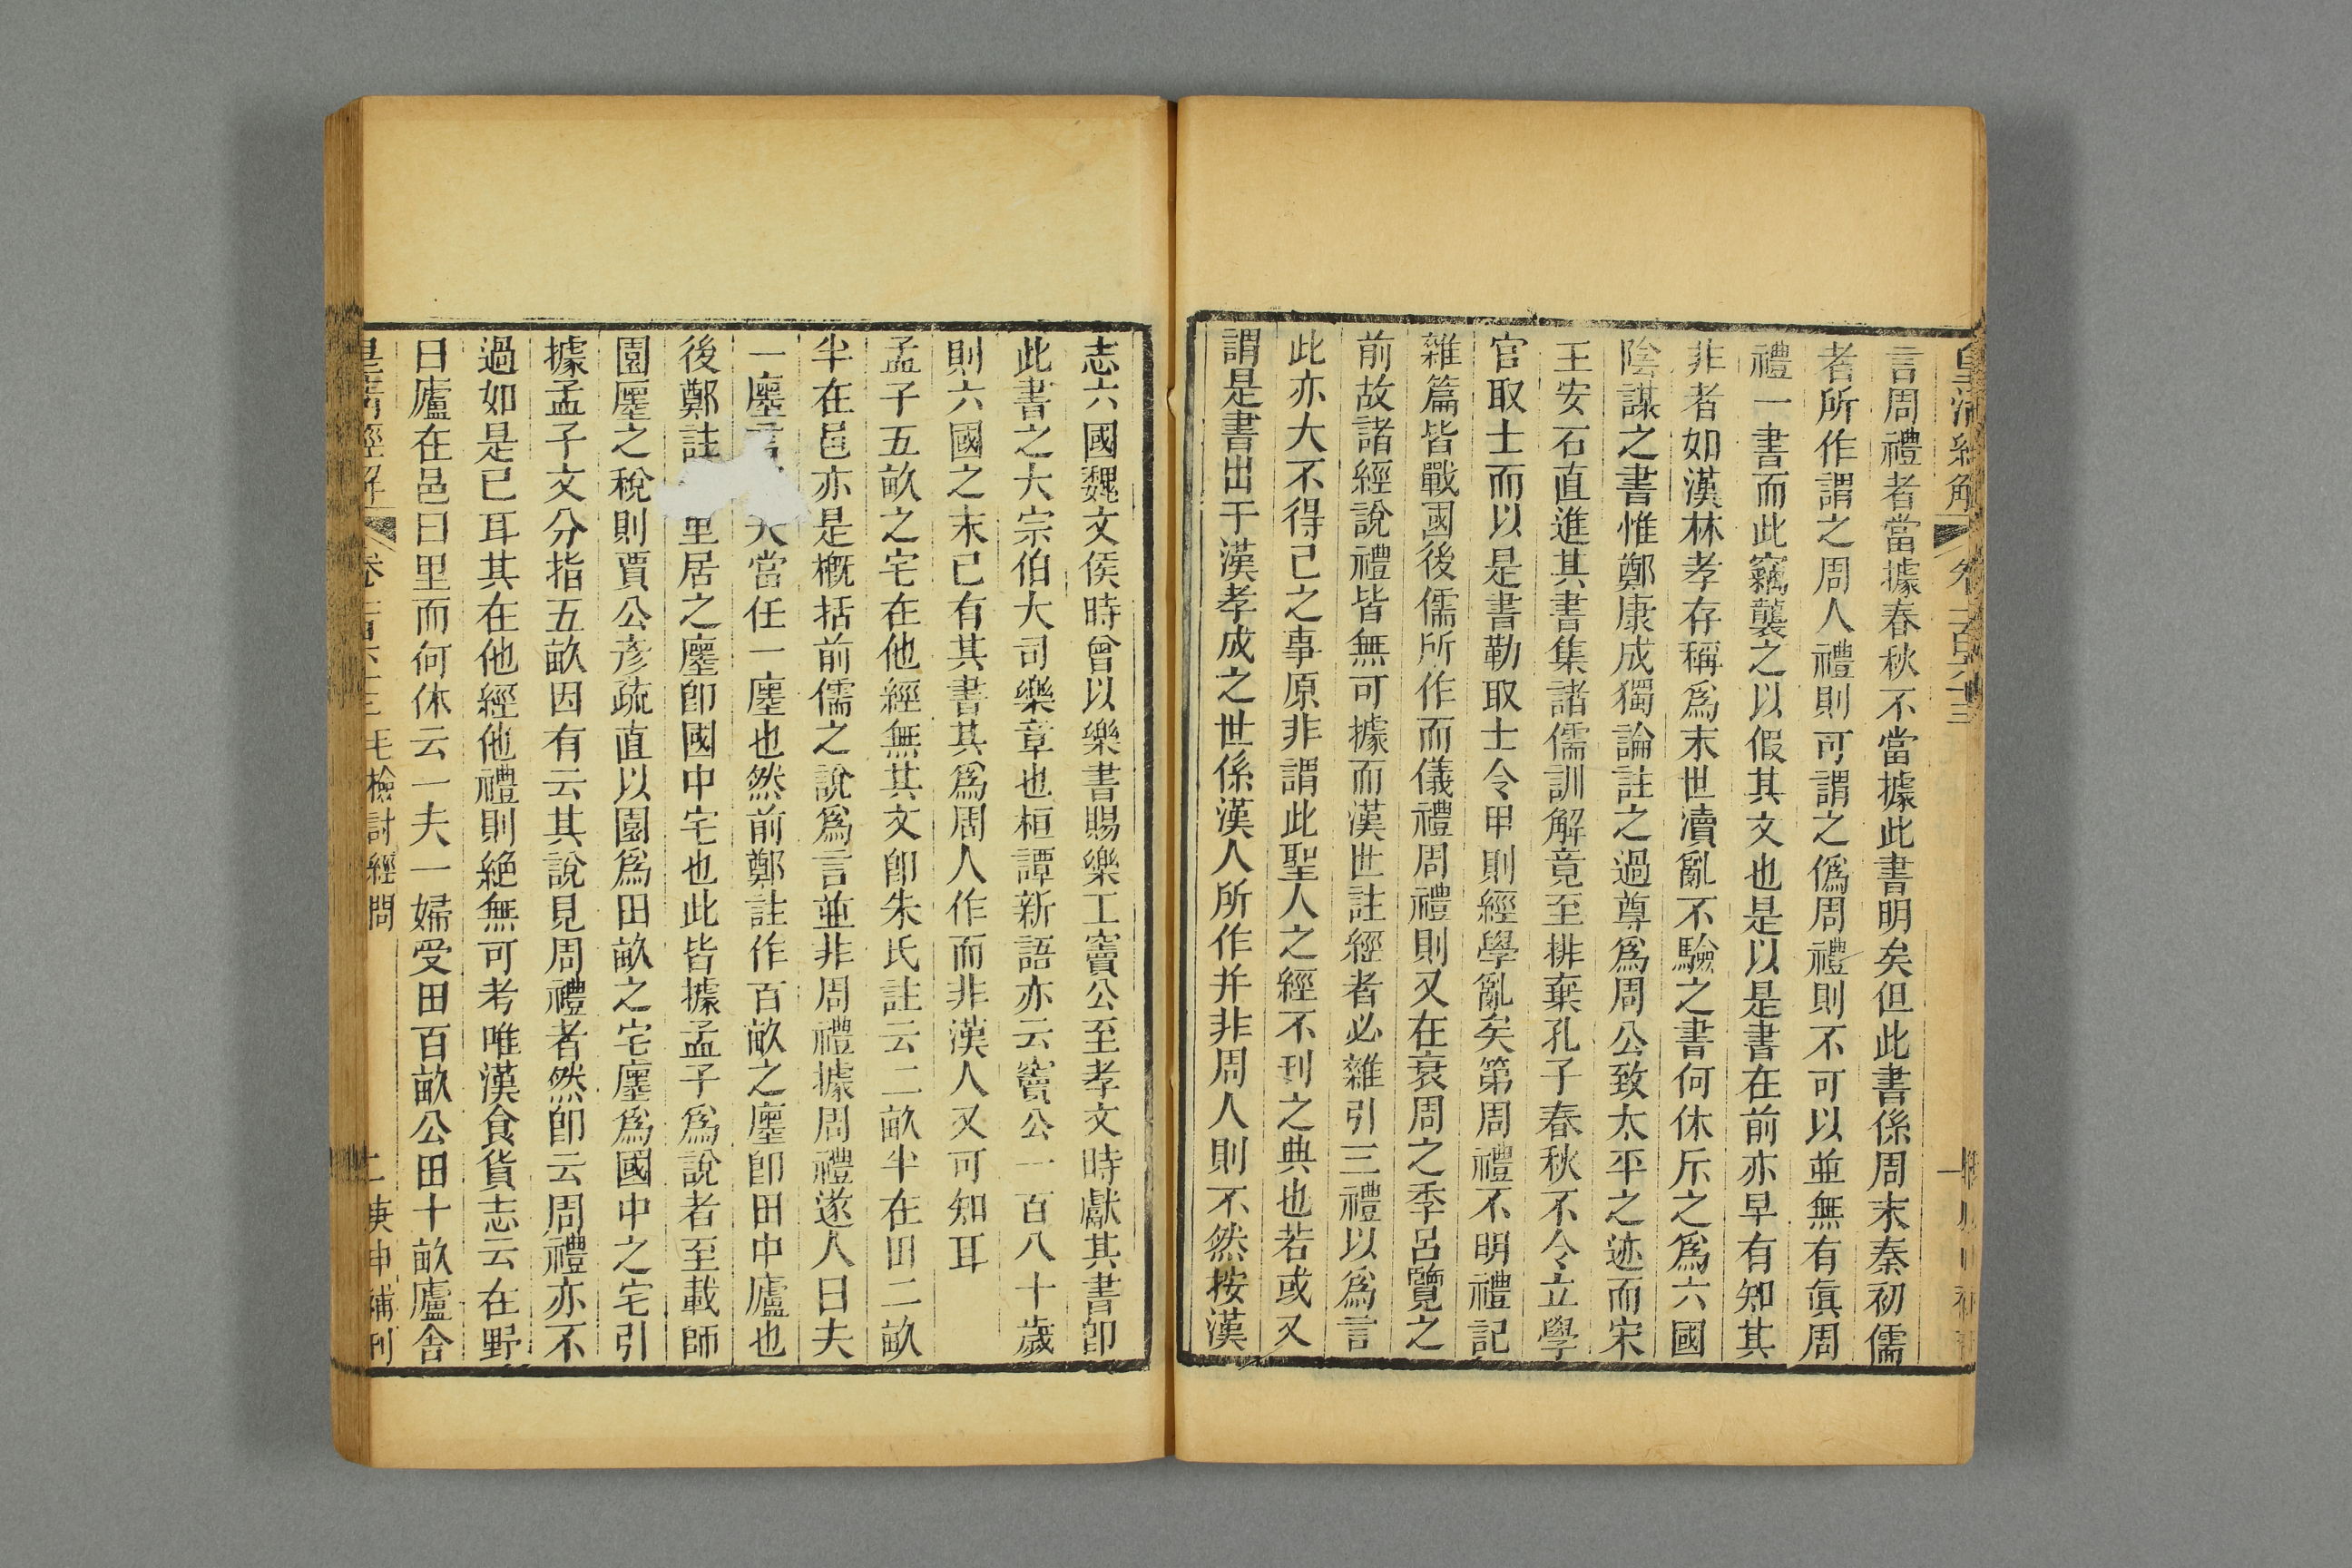 言周禮者當據春秋不當據此書明矣但此書係周末秦初儒
者所作謂之周人禮則可謂之僞周禮則不可以並無有眞周
禮一書而此竊襲之以假其文也是以是書在前亦早有知其
非者如漢林孝存稱爲末世瀆亂不驗之書何休斥之爲六國
陰謀之書惟鄭康成獨論註之過尊爲周公致太平之迹而宋
王安石直進其書集諸儒訓解竟至排棄孔子春秋不令立學
官取士而以是書勒取士令甲則經學亂矣第周禮不明禮記
雜篇皆戰國後儒所作而儀禮周禮則又在衰周之季呂覽之
前故諸經說禮皆無可據而漢世註經者必雜引三禮以爲言
此亦大不得已之事原非謂此聖人之經不刊之典也若或又
謂是書出于漢孝成之世係漢人所作幷非周人則不然按漢
志六國魏文侯時曾以樂書賜樂工竇公至孝文時獻其書卽
此書之大宗伯大司樂章也桓譚新語亦云竇公一百八十歲
則六國之末已有其書其爲周人作而非漢人又可知耳
孟子五畝之宅在他經無其文卽朱氏註云二畝半在田二畝
半在邑亦是概括前儒之說爲言並非周禮據周禮遂人曰夫
一廛言夫當任一廛也然前鄭註作百畝之廛卽田中廬也
後鄭註里居之廛卽國中宅也此皆據孟子爲說者至載師
園廛之稅則賈公彥疏直以園爲田畝之宅廛爲國中之宅引
據孟子文分指五畝因有云其說見周禮者然卽云周禮亦不
過如是已耳其在他經他禮則絶無可考唯漢食貨志云在野
曰廬在邑曰里而何休云一夫一婦受田百畝公田十畝廬舍
皇淸經解 卷 毛檢討經問 二 庚申補刊